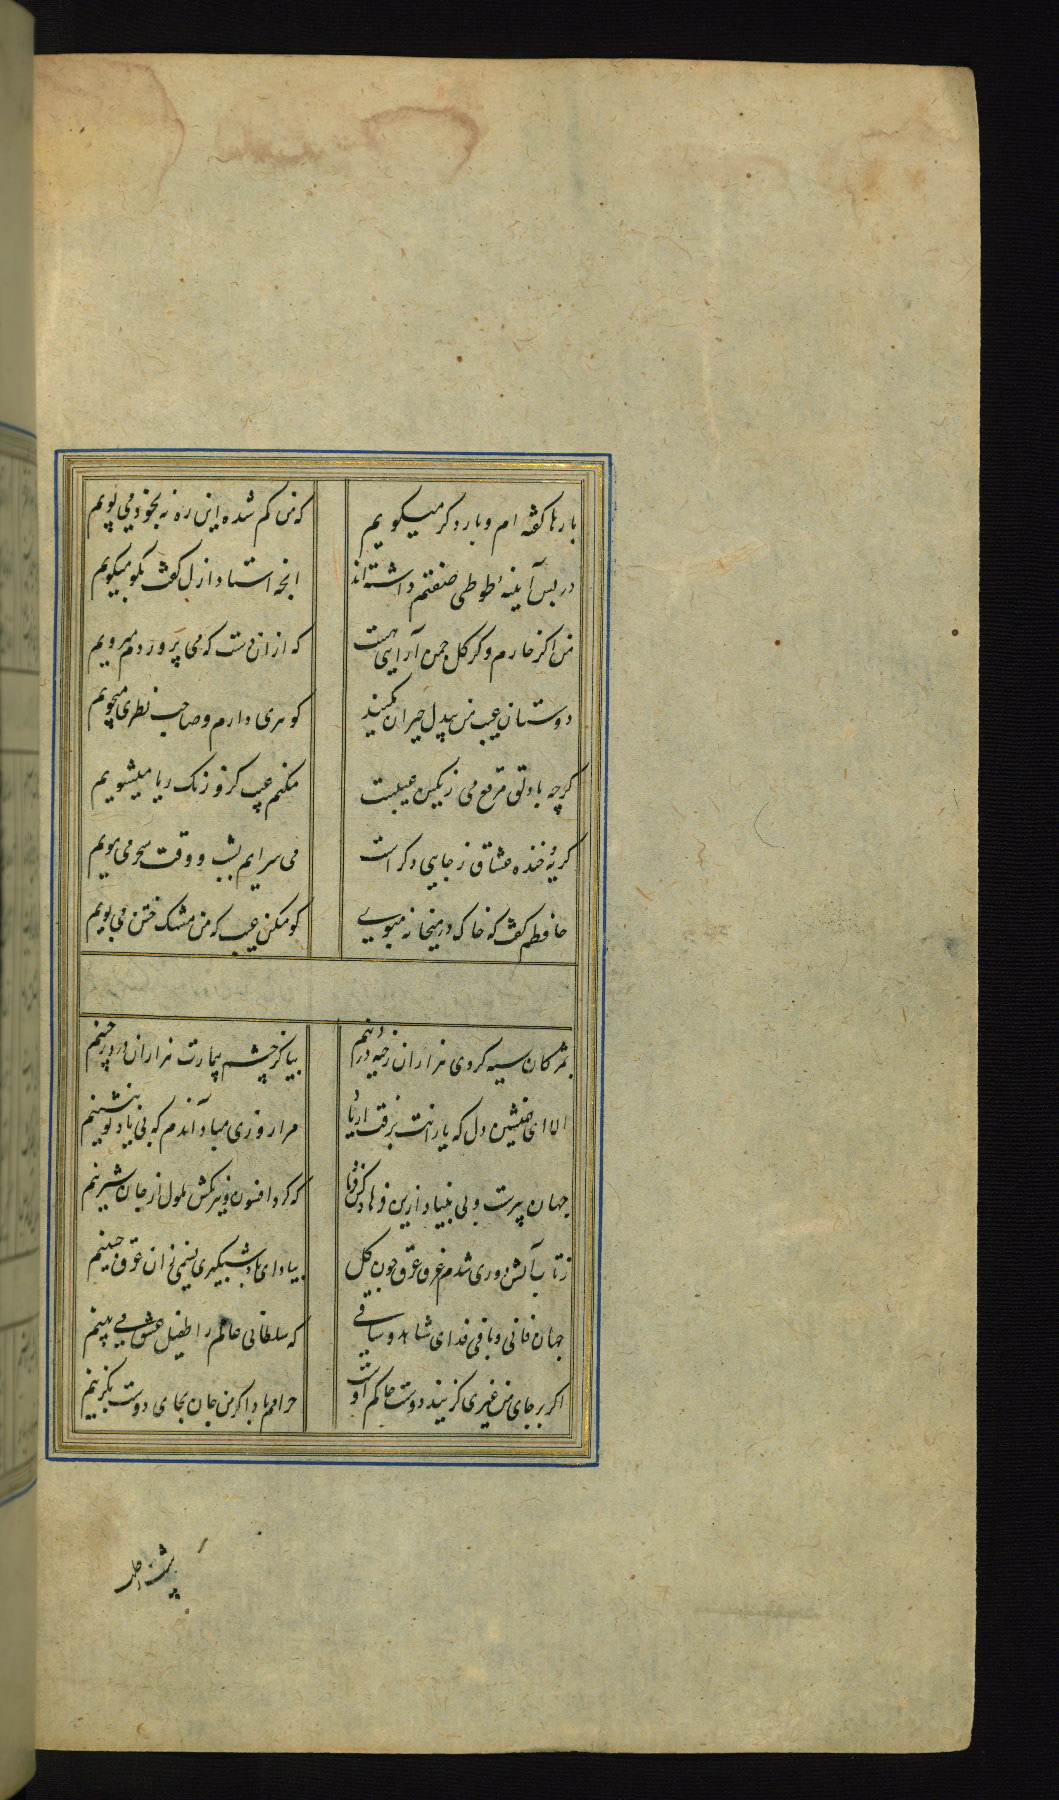 بارها گفته ام و بار دگر میگویم که من گم شده این ره نه بخود می پویم
در پس آینه طوطی صفتم داشته اند انچه استاد ازل گفت بگو میگویم
من اگر خارم و گر گل چمن آرایی هست که از ان دست که می پروردم میرویم
دوستان عیب من بیدل حیران مکنید گوهری دارم و صاحب نظری میجویم
گرچه با دلق مرقع می رنگین عیبست مکنم عیب کزو رنگ ریا میشویم
گریه و خنده عشاق ز جایی دگر است می سرایم بشب و وقت سحر می مویم
حافظم گفت که خاک در میخانه مبوی گو مکن عیب که من مشک ختن می بویم
بمژگان سیه کردی هزاران رخنه در دینم بیا کز چشم بیمارت هزاران درد برچینم
الا ای همنشین دل که یارانت برفت از یاد مرا روزی مباد آندم که بی یاد تو بنشینم
جهان پیرست و بی بنیاد ازین فرهادکش فریاد که کرد افسون و نیرنگش ملول از جان شیرینم
ز تاب آتش دوری شدم غرق عرق چون گل بیار ای باد شبگیری نسیمی زان عرق چینم
جهان فانی و باقی فدای شاهد و ساقی که سلطانی عالم را طفیل عشق می بینم
اگر بر جای من غیری گزیند دوست حاکم اوست حرامم باد اگر من جان بجای دوست بگزینم